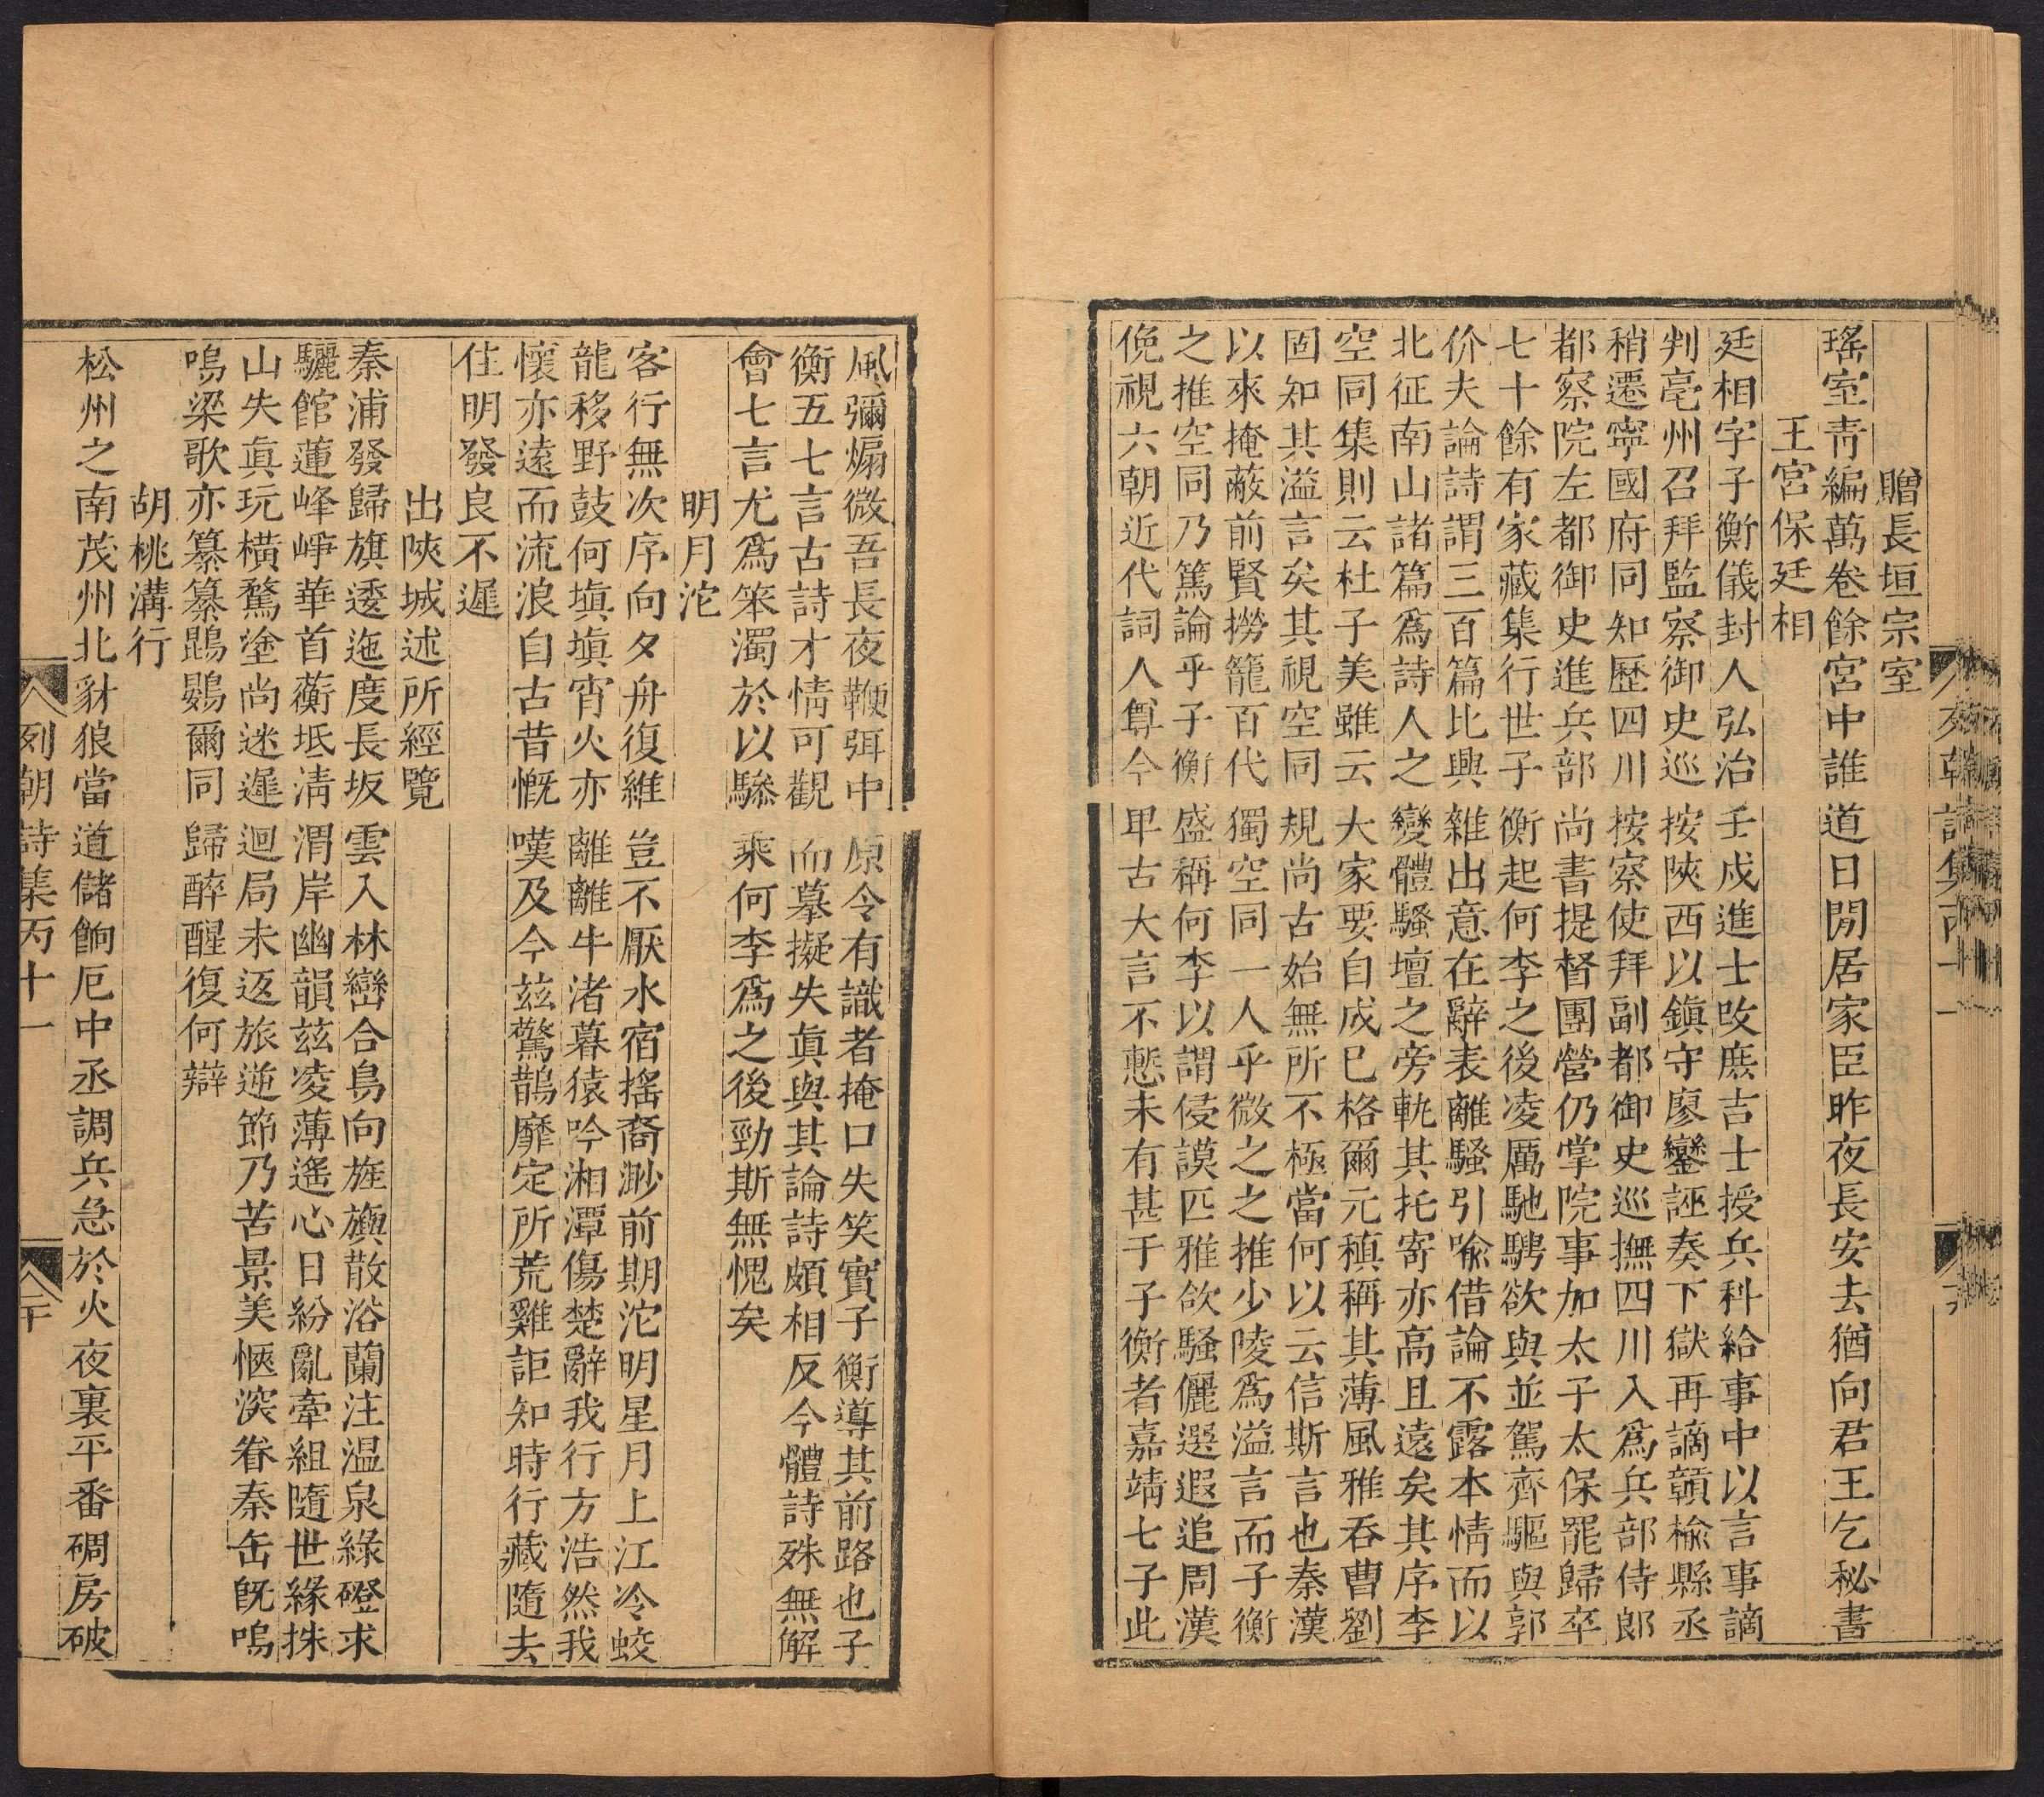 贈長垣宗室
瑤室靑編萬卷餘宮中誰道日閉居家臣昨夜長安去猶向君王乞秘書
王宮保廷相
廷相字子衡儀封人弘治壬戍進士攺庶吉士授兵科給事中以言事謫
判亳州召拜監察御史巡按陝西以鎮守廖鑾誣奏下獄再謫贛榆縣丞
稍遷寧國府同知歷四川按察使拜副都御史巡撫四川入爲兵部侍郎
都察院左都御史進兵部尚書提督團營仍掌院事加太子太保罷歸卒
七十餘有家藏集行世子衡起何李之後凌厲馳騁欲與並駕齊驅與郭
价夫論詩謂三百篇比興雜出意在辭表離騷引喻借論不露本情而以
北征南山諸篇爲詩人之變體騷壇之旁軌其托寄亦高且遠矣其序李
空同集則云杜子美雖云大家要自成巳格爾元稹稱其薄風雅吞曹劉
固知其溢言矣其視空同規尚古始無所不極當何以云信斯言也秦漢
以來掩蔽前賢撈籠百代獨空同一人乎微之之推少陵爲溢言而子衡
之推空同乃篤論乎子衡盛稱何李以謂侵謨匹雅欱騷儷選遐追周漢
俛視六朝近代詞人尊今卑古大言不慙未有甚于子衡者嘉靖七子此
風彌煽微吾長夜鞭弭中原令有識者掩口失笑實子衡導其前路也子
衡五七言古詩才情可觀而摹擬失眞與其論詩頗相反今體詩殊無解
會七言尤爲笨濁於以驂乘何李爲之後勁斯無愧矣
明月沱
客行無次序向夕舟復維豈不厭水宿搖裔渺前期沱明星月上江冷蛟
龍移野鼓何塡塡宵火亦離離牛渚暮猿吟湘潭傷楚辭我行方浩然我
懷亦遠而流浪自古昔慨嘆及今茲驚鵲靡定所荒雞詎知時行藏隨去
住明發良不遲
出陝城述所經覽
秦浦發歸旗逶迤度長坂雲入林巒合鳥向旌旟散浴蘭注温泉綠磴求
驪館蓮峰崢華首蘅坻淸渭岸幽韻茲凌薄遙心日紛亂牽組隨世緣抹
山失眞玩橫騖塗尚迷遲迴局未返旅逆節乃苦景美愜㴱眷秦缶旣嗚
嗚梁歌亦纂纂鵾鷃爾同歸醉醒復何辯
胡桃溝行
松州之南茂州北豺狼當道儲餉厄中丞調兵急於火夜裏平番碉房破
列朝詩集丙十一